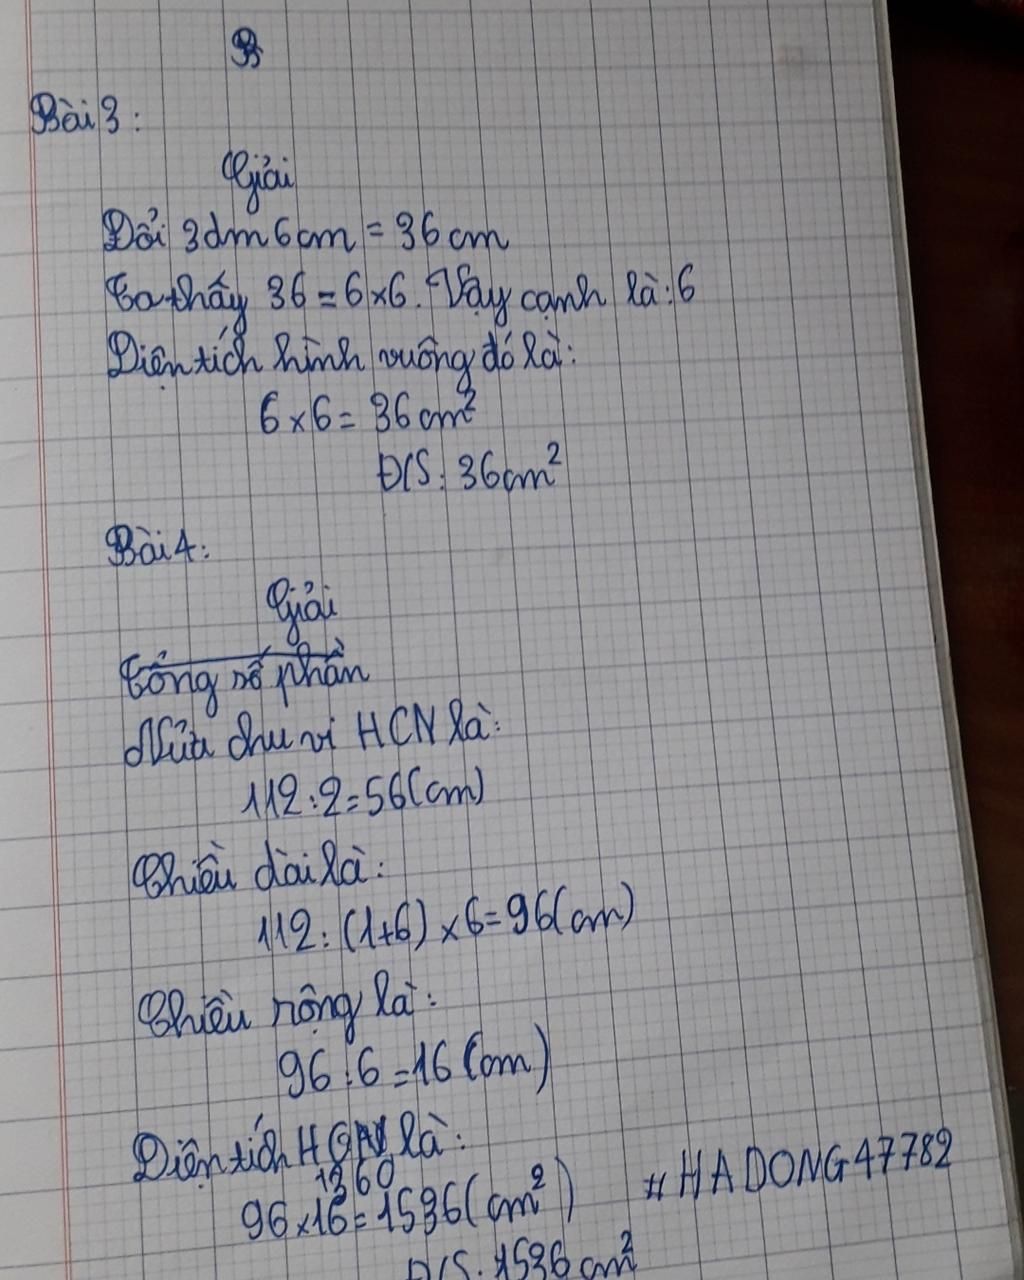 B
Bài 3:
Giải
Đổi 3dm 6cm = 36 cm
Ta thấy 36 = 6 x 6. Vậy cạnh là: 6
Diện tích hình vuông đó là:
6 x 6 = 36 cm²
Đ/S: 36cm²
Bài 4:
Giải
Tổng số phần
Nửa chu vi HCN là:
112 : 2 = 56 (cm)
Chiều dài là:
112 : (1+6) x 6 = 96 (cm)
Chiều rộng là:
96 : 6 = 16 (cm)
Diện tích HCN là:
1360
96 x 16 = 1536 (cm²)
#HADONG47782
Đ/S: 1536 cm²